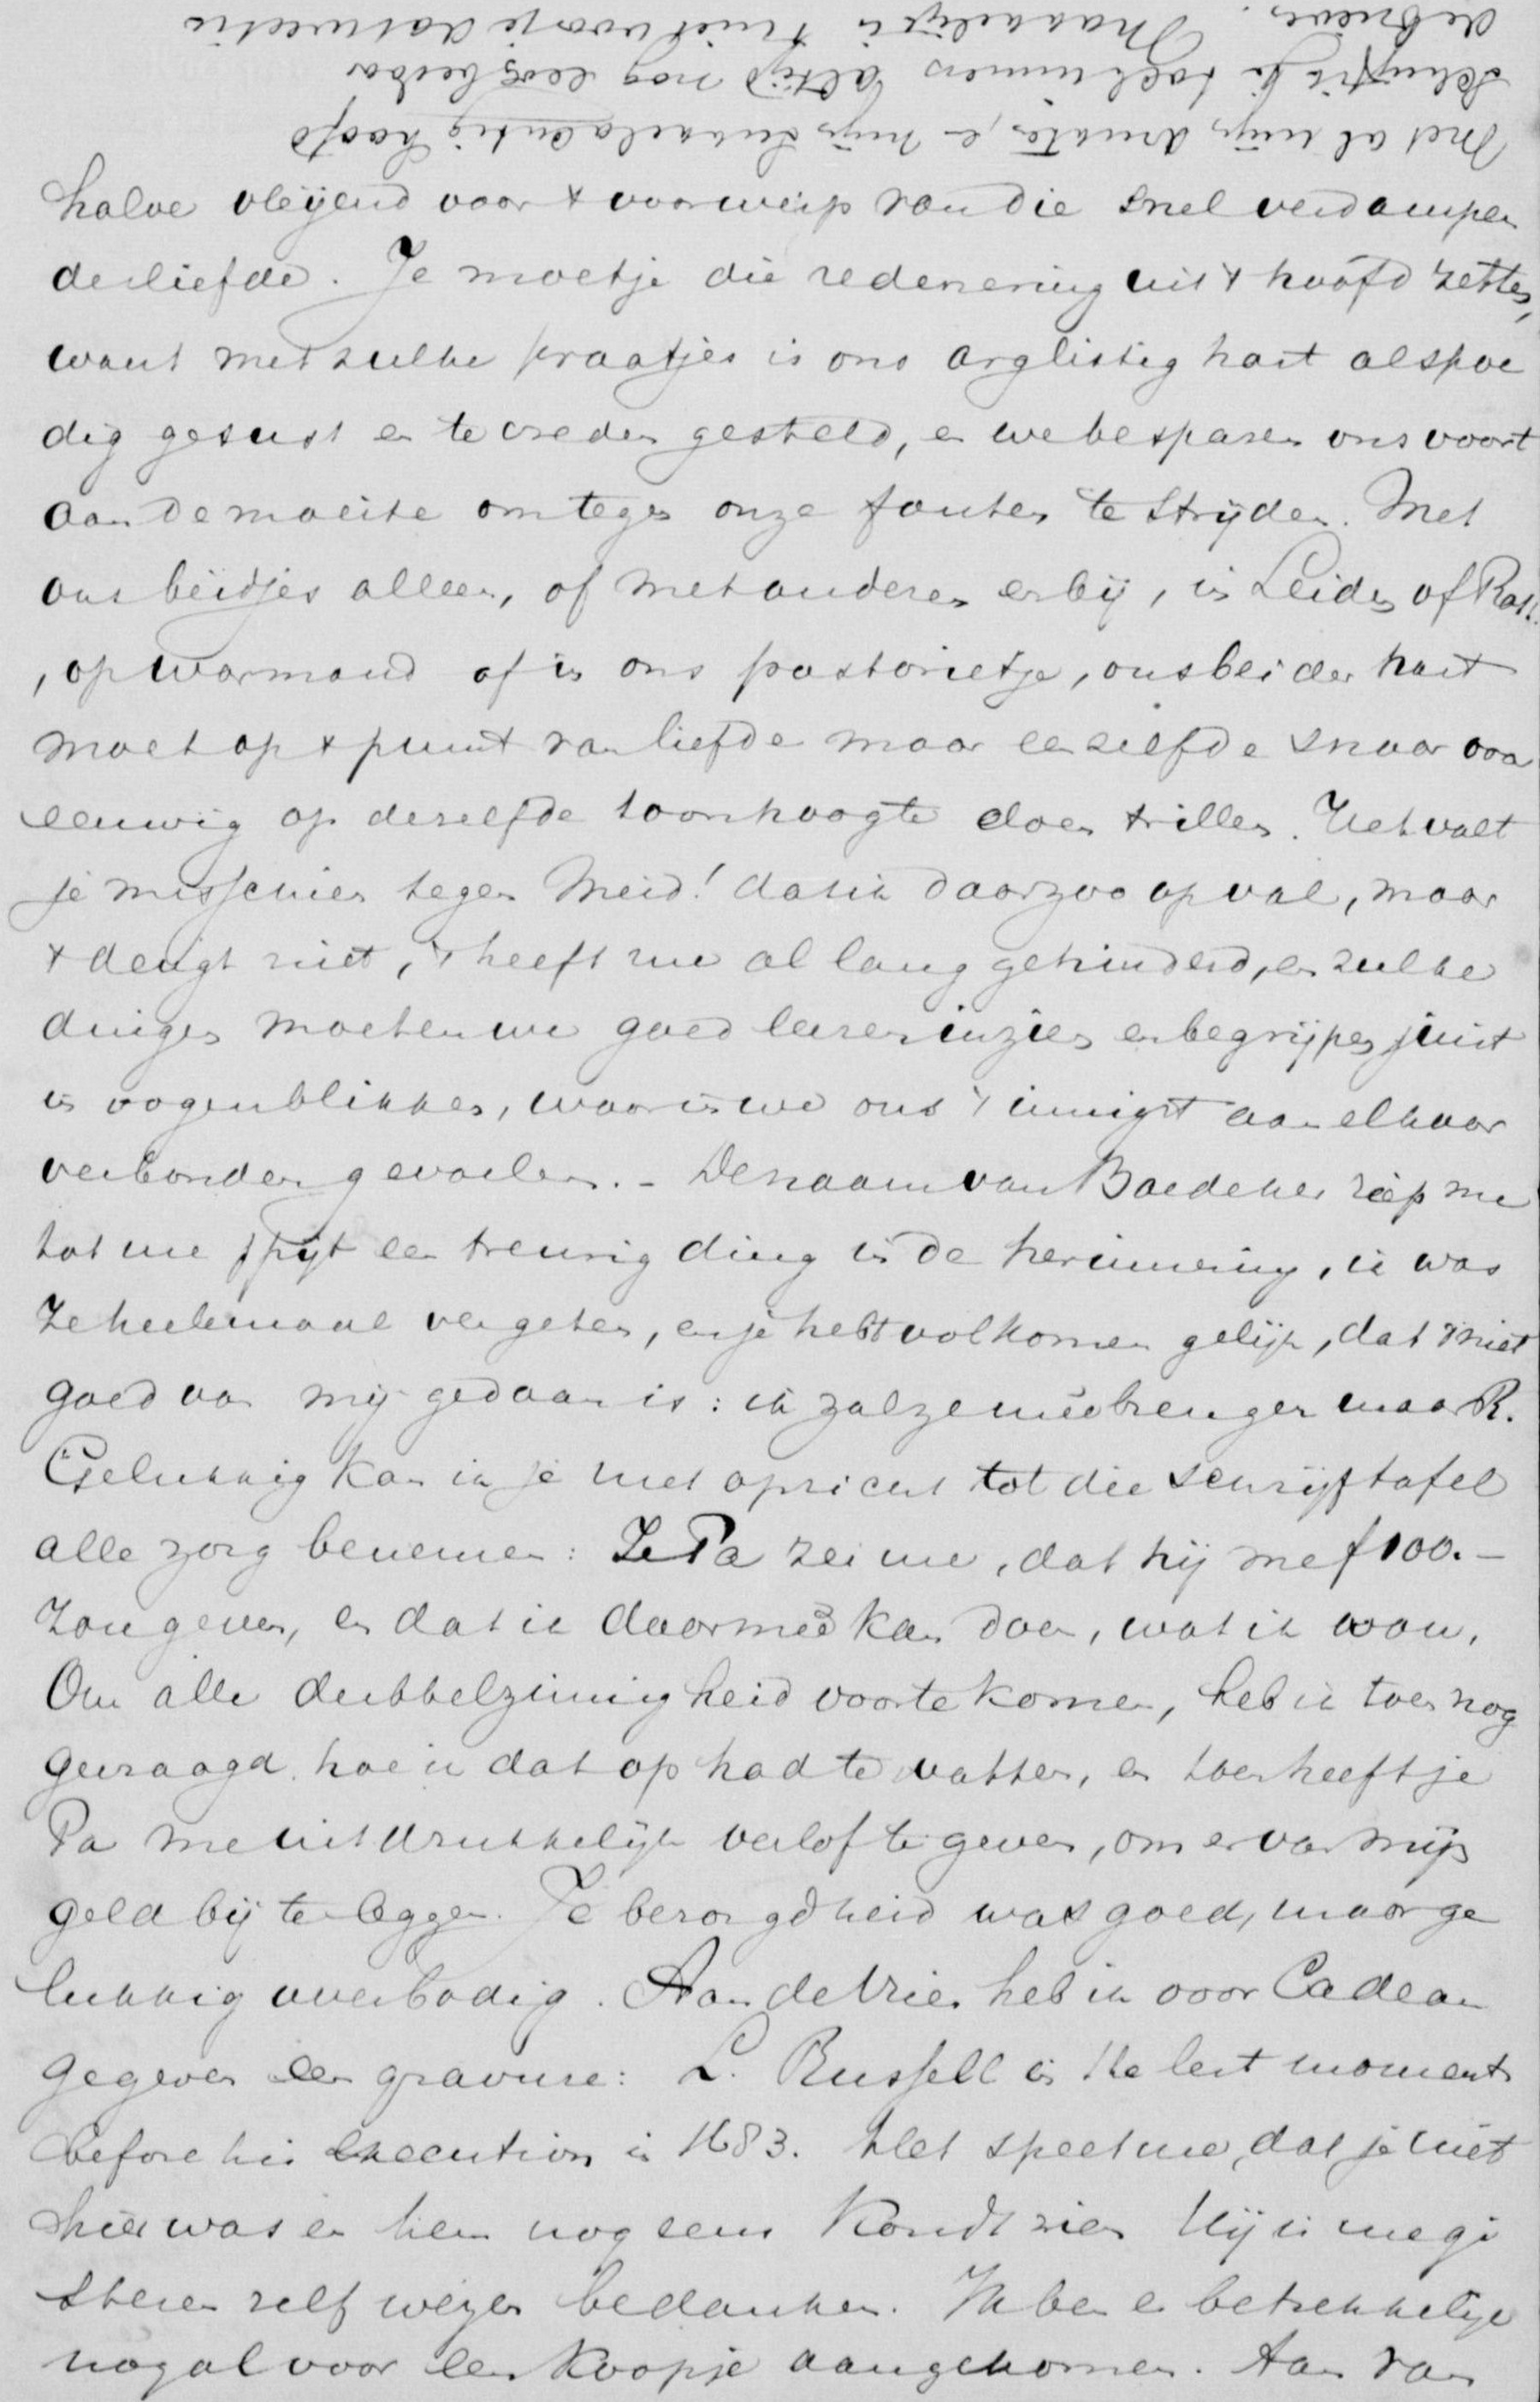 Met al mijn drukte, en mijn sukkelachtig hoofd
schrijf ik je toch immers altijd nog leesbaar
de brieven. Makkelijk is 't niet voor je dat weet ik
halve vleijend voor 't voorwerp van die snel verdampen
de liefde. Je moet je die redenering uit 't hoofd zetten,
want met zulke praatjes is ons arglistig hart alspoe
dig gesust en te vreden gesteld, en we besparen ons voort
aan de moeite om tegen onze fouten te strijden. Met
ons beidjes alleen, of met anderen erbij, in Leiden of Rott.
, op Warmond of in ons pastorietje, ons beider hart
moet op 't punt van liefde maar eenzelfde snaar voor
eeuwig op dezelfde toonhoogte doen trillen. Het valt
je misschien tegen Meid! dat ik daar zoo op val, maar
't deugt niet, 't heeft me al lang gehinderd, en zulke
dingen moeten we goed leeren inzien en begrijpen juist
in oogenblikken, waarin we ons 't innigst aan elkaar
verbonden gevoelen. - De naam van Baedeker riep me
tot me spijt een treurig ding in de herinnering, ik was
ze heelemaal vergeten, en je hebt volkomen gelijk, dat 't niet
goed van mij gedaan is: ik zal ze meêbrengen naar R.
Gelukkig kan ik je met opzicht tot die schrijftafel
alle zorg benemen: Je Pa zei me, dat hij me f 100.-
zou geven, en dat ik daarmeê kan doen, wat ik wou.
Om alle dubbelzinnigheid voor te komen, heb ik toen nog
gevraagd hoe ik dat op had te vatten, en toen heeft je
Pa me uitdrukkelijk verlof te geven, om er van mijn
geld bij te leggen. Je bezorgdheid was goed, maar ge
lukkig overbodig. Aan de Vries heb ik voor Cadeau
gegeven een gravure: L. Russell in the lest moments
before his execution in 1683. Het speet me, dat je niet
hier was en hem nog eens kondt zien Hij is me gi
steren zelf wezen bedanken. Ik ben er betrekkelijk
nogal voor een koopje aangekomen. Aan van